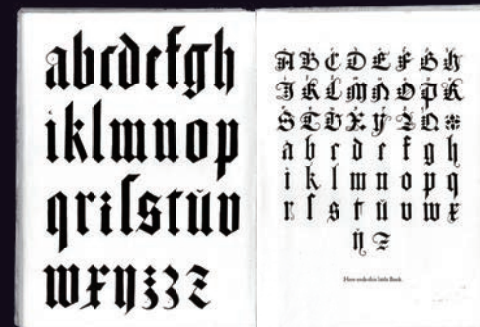 abcdefgh
iklmnop
qrꝛſstŭv
wxyʒʒz
A B C D E F G H
I K L M N O P R
S T V X Y Z Q
a b c d e f g h
i k l m n o p q
r ſ s t ŭ v w x
ÿ z
Here ends this little Book.